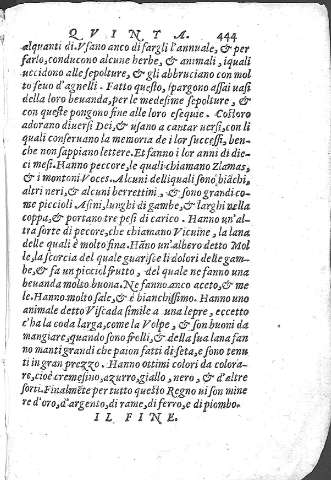 QVINTA. 444
alquanti di. Vsano anco di fargli l'annuale, & per
farlo, conducono alcune herbe, & animali, iquali
uccidono alle sepolture, & gli abbruciano con mol
to seuo d'agnelli. Fatto questo, spargono assai uasi
della loro beuanda, per le medesime sepolture, &
con queste pongono fine alle loro esequie. Costoro
adorano diuersi Dei, & usano a cantar uersi, con li
quali conseruano la memoria de i lor successi, ben-
che non sappiano lettere. Et fanno i lor anni di die-
ci mesi. Hanno peccore, le quali chiamano Zlamas,
& i montoni Vocos. Alcuni delli quali sono biāchi,
altri neri, & alcuni berrettini, & sono grandi co-
me piccioli Asini, lunghi di gambe, & larghi nella
coppa, & portano tre pesi di carico. Hanno un'al-
tra sorte di pecore, che chiamano Vicuine, la lana
delle quali è molto fina. Hāno un'albero detto Mol
le, la scorcia del quale guarisce li dolori delle gam-
be, & fa un picciol frutto, del quale ne fanno una
beuanda molto buona. Ne fanno anco aceto, & me
le. Hanno molto sale, & è bianchissimo. Hanno uno
animale detto Viscada simile a una lepre, eccetto
c'ha la coda larga, come la Volpe, & son buoni da
mangiare, quando sono frolli, & della sua lana fan
no manti grandi che paion fatti di seta, e sono tenu
ti in gran prezzo. Hanno ottimi colori da colora-
re, cioè cremesino, azurro, giallo, nero, & d'altre
sorti. Finalmēte per tutto questo Regno ui son mine
re d'oro, d'argento, di rame, di ferro, e di piombo.
IL FINE.